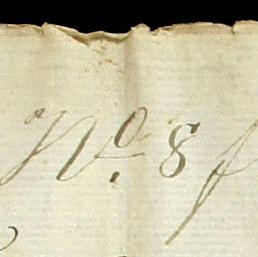 Nº 8